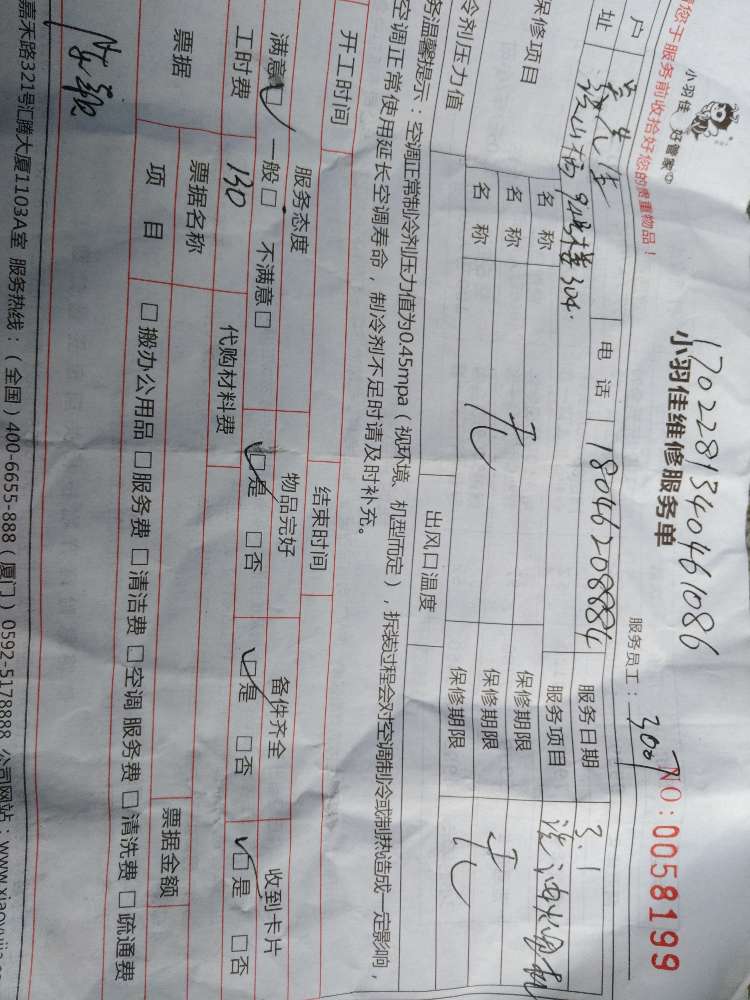 您于服务前收拾好您的贵重物品！
小羽佳 好管家
1702281340461086
小羽佳维修服务单
服务员工：
NO：0058199
户
电 话 18046208884 服务日期 3.1
址 304. 服务项目 洗油烟机
保修项目 名 称 保修期限
名 称 无 保修期限 无
名 称 保修期限
冷剂压力值 出风口温度
务温馨提示：空调正常制冷剂压力值为0.45mpa（视环境、机型而定），拆装过程会对空调制冷或制热造成一定影响，
空调正常使用延长空调寿命，制冷剂不足时请及时补充。
开工时间 结束时间
服务态度 物品完好 备件齐全 收到卡片
满意☑ 一般□ 不满意□ ☑是 □否 ☑是 □否 ☑是 □否
工时费 130 代购材料费
票据 票据名称 票据金额
项 目 □搬办公用品 □服务费 □清洁费 □空调 服务费 □清洗费 □疏通费
嘉禾路321号汇腾大厦1103A室 服务热线：（全国）400-6655-888（厦门）0592-5178888 公司网站：www.xiaoyujia.c